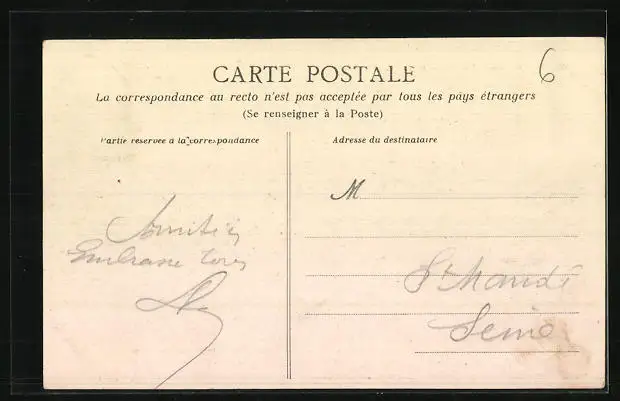 6
CARTE POSTALE
La correspondance au recto n'est pas acceptée par tous les pays étrangers
(Se renseigner à la Poste)
Partie réservée à la correspondance
Adresse du destinataire
M
Amitiés
Embrasse
St Mandé
Seine